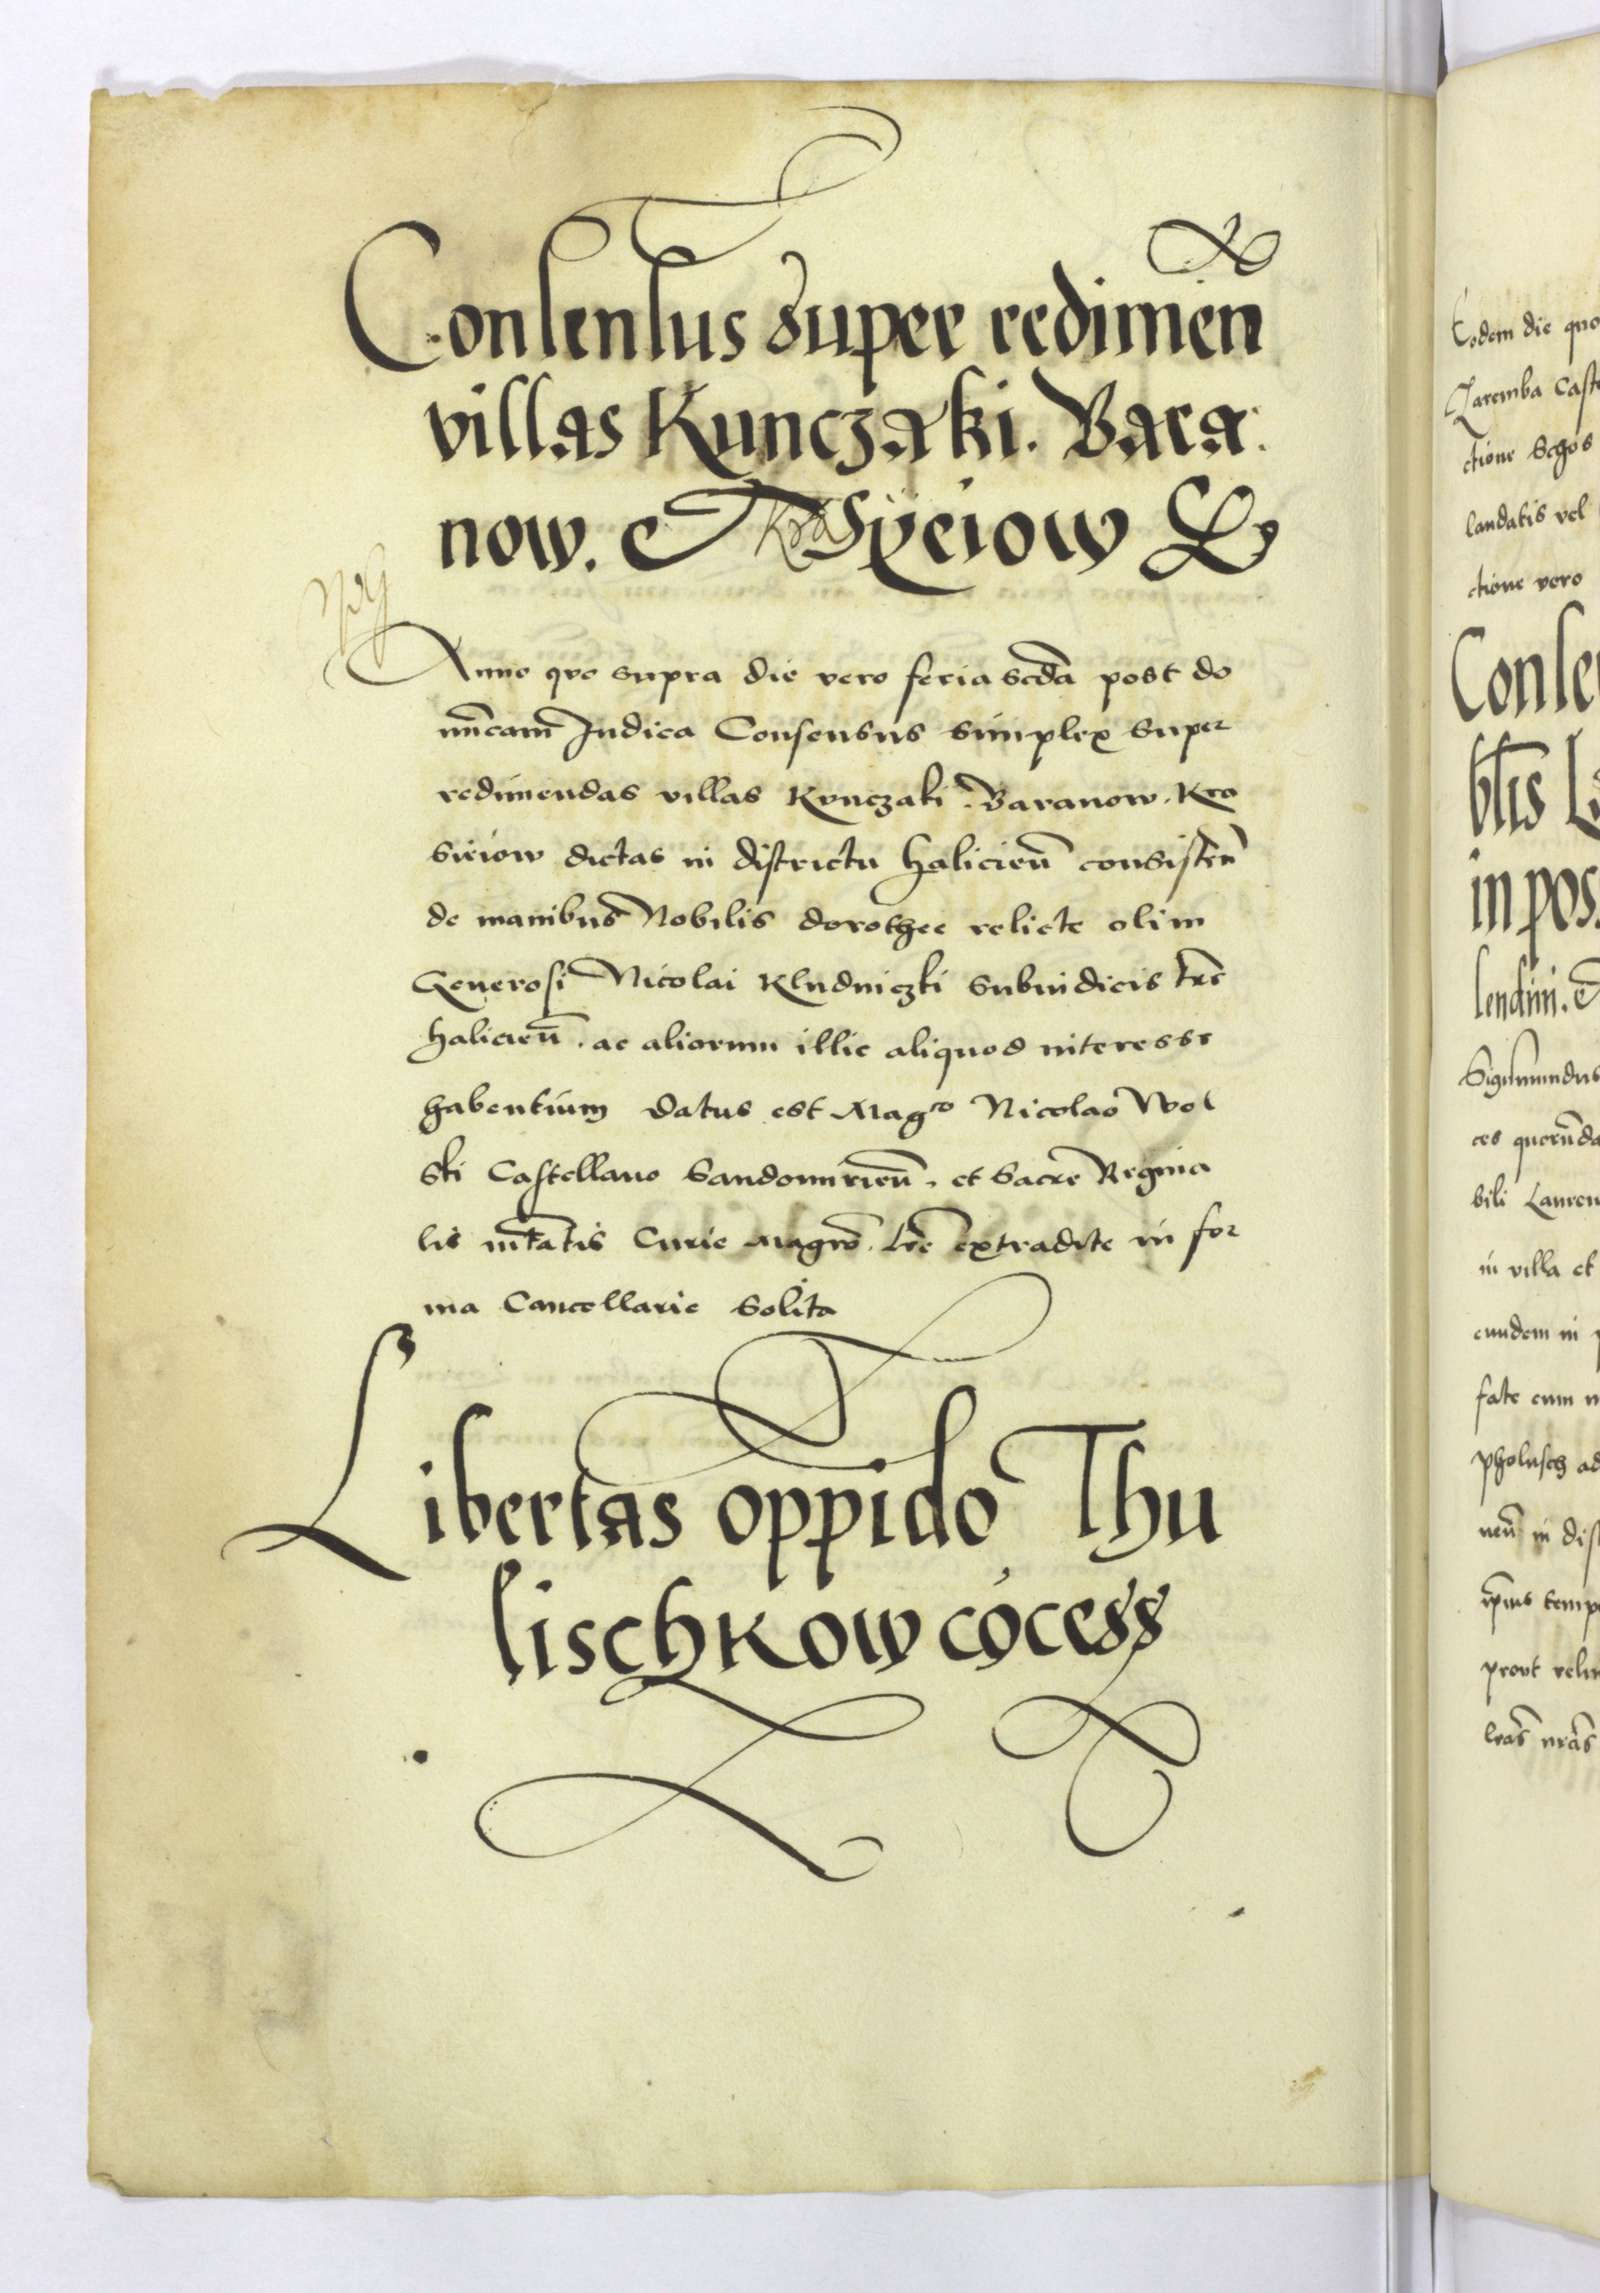 Consensus super redimen̄
villas Kunczaki. Bara
now. et Kro Syeiow &
Anno quo supra die vero feria scďa post do
mīcam Judica Consensus simplex super
redimendas villas Kunczaki. Baranow. Kro
sieiow dictas in districtu halicien̄ consisten̄
de manibus Nobilis dorothee relicte olim
Generosi Nicolai Kludniczki subiudicis tr̄e
halicien̄. ac aliorum illic aliquod interesse
habentium datus est Mag^co Nicolao Wol
ski Castellano Sandomirien̄. et Sacre Regina
lis mt̄atis Curie magr̄o. lr̄e extradite in for
ma Cancellarie solita
Libertas oppido Thu
lischkow cōcess
Eodem die quo
Zaremba Caste
ctione
landatis vel
ctione vero
Conse
in pos
Sigismundus
ces quorūda
bili Lauren
in villa et
eundem in
fate cum
pholusch ad
neū in dist
ip̄ius temp
prout
lr̄as nr̄as